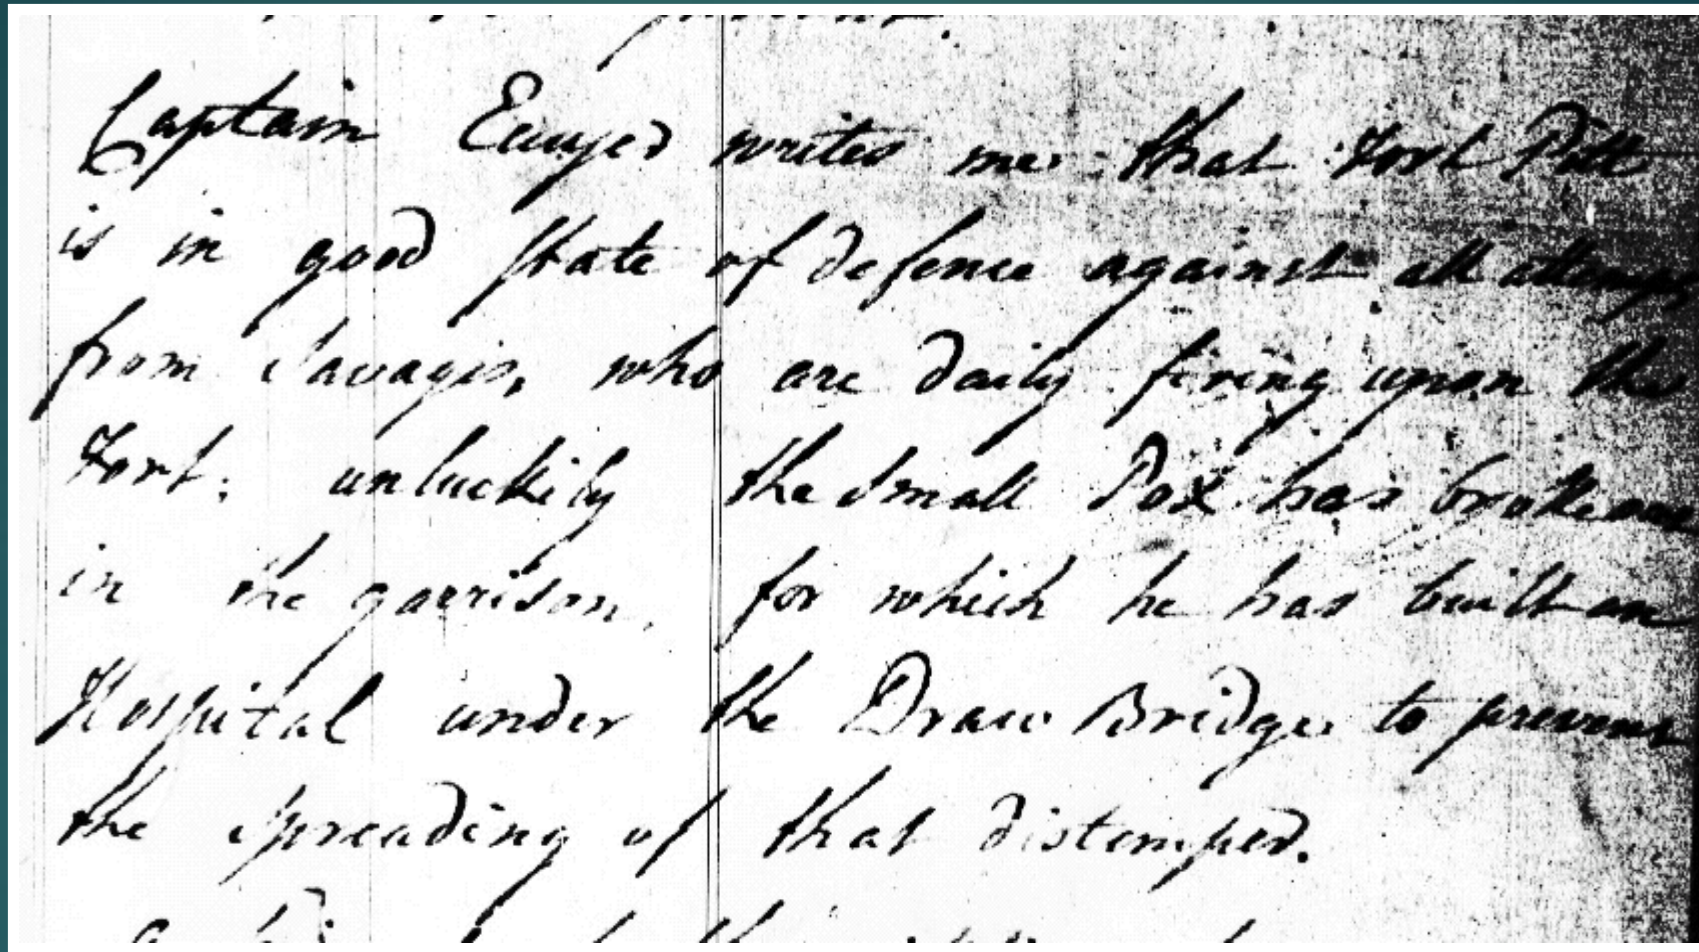 Captain Ecuyer writes me that Fort Pitt
is in good State of defence against all attempts
from Savages, who are daily firing upon the
Fort; unluckily the Small Pox has broke out
in the garrison, for which he has built an
Hospital under the Draw Bridge to prevent
the spreading of that distemper.